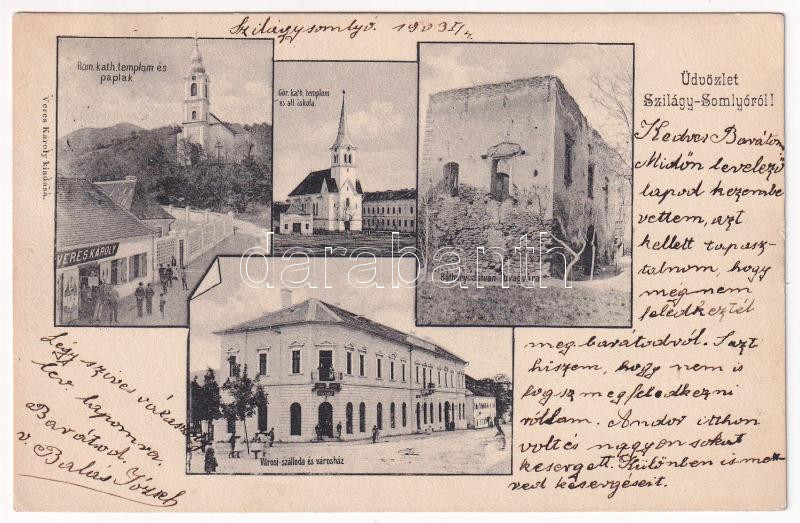 Szilágysomlyó. 1903 I/4.
Róm. kath. templom és
paplak
Gör. kath. templom
és áll iskola.
Veres Károly kiadása.
VERES KÁROLY
Báthory István várvára
Városi-szálloda és városház
darabanth
Üdvözlet
Szilágy-Somlyóról!
Kedves Barátom
Midőn levelező
lapod kezembe
vettem, azt
kellett tapasz-
talnom, hogy
még nem
feledkeztél
meg barátodról. S azt
hiszem, hogy nem is
fogsz megfeledkezni
rollam. Andor itthon
volt és nagyon sokat
kesergett. Különben ismer-
ved kesergéseit.
Légy szives válaszolj
lev. lapomra.
Barátod
v. Balás József